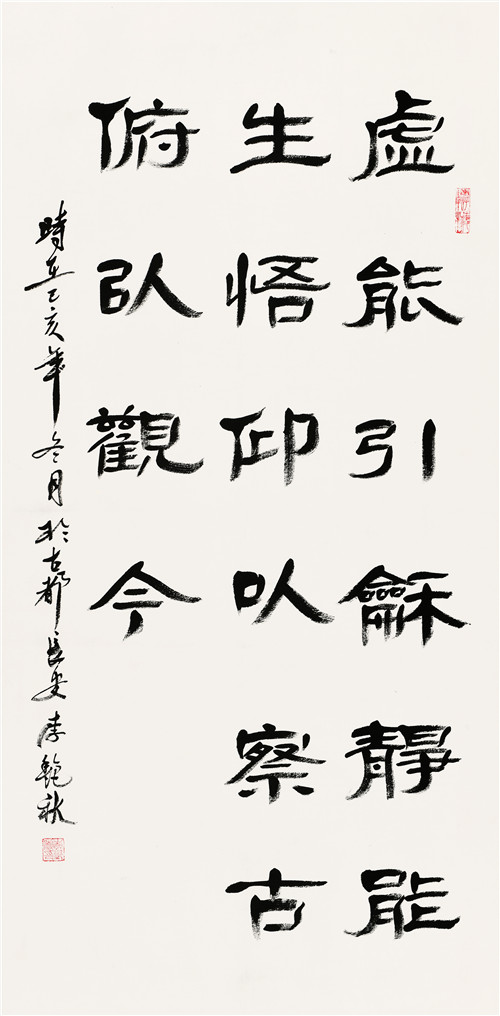 虚能引龢靜能
生悟仰以察古
俯以觀今
時在己亥年冬月於古都長安李秋